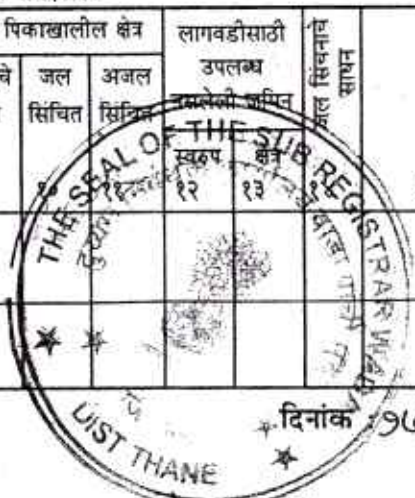 पिकाखालील क्षेत्र
लागवडीसाठी उपलब्ध नसलेली जमिन
जल सिंचनाचे साधन
चे
जल सिंचित
अजल सिंचित
स्वरुप
क्षेत्र
१० ११ १२ १३ १४
THE SEAL OF THE SUB REGISTRAR WADA
DIST THANE
दिनांक :